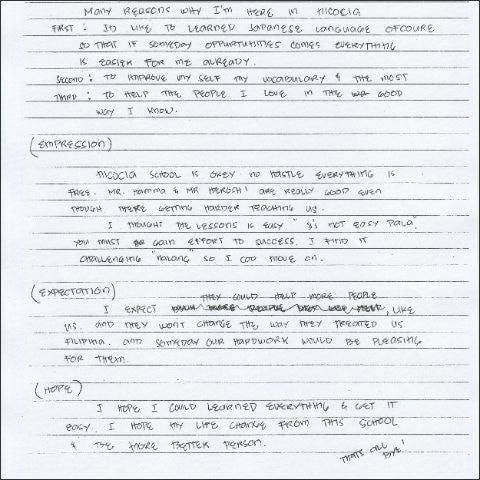 MANY REASONS WHY I'M HERE IN NICOCIA
FIRST : I'D LIKE TO LEARNED JAPANESE LANGUAGE OFCOURE
SO THAT IF SOMEDAY OPPURTUNITIES COMES EVERYTHING
IS EASIER FOR ME ALREADY.
SECOND : TO IMPROVE MY SELF MY VOCABULARY & THE MOST
THIRD : TO HELP THE PEOPLE I LOVE IN THE GOOD
WAY I KNOW.
(EMPRESSION)
NICOCIA SCHOOL IS OKEY NO HASTLE EVERYTHING IS
FREE. MR. HAMMA & MR HEROSHI ARE REALLY GOOD EVEN
THOUGH THERE GETTING HARDER TEACHING US.
I THOUGHT THE LESSONS IS EASY NOT EASY PALA".
YOU MUST GAIN EFFORT TO SUCCESS. I FIND IT
CHALLENGING "NALANG" SO I COD MOVE ON.
(EXPECTATION)
THEY COULD HELP MORE PEOPLE
I EXPECT , LIKE
US. AND THEY WONT CHANGE THE WAY THEY TREATED US
FILIPINA. AND SOMEDAY OUR HARDWORK WOULD BE PLEASING
FOR THEM.
(HOPE)
I HOPE I COULD LEARNED EVERYTHING & GET IT
EASY. I HOPE MY LIFE CHANGE FROM THIS SCHOOL
& BE MORE BETTER PERSON.
THATS ALL
BYE!